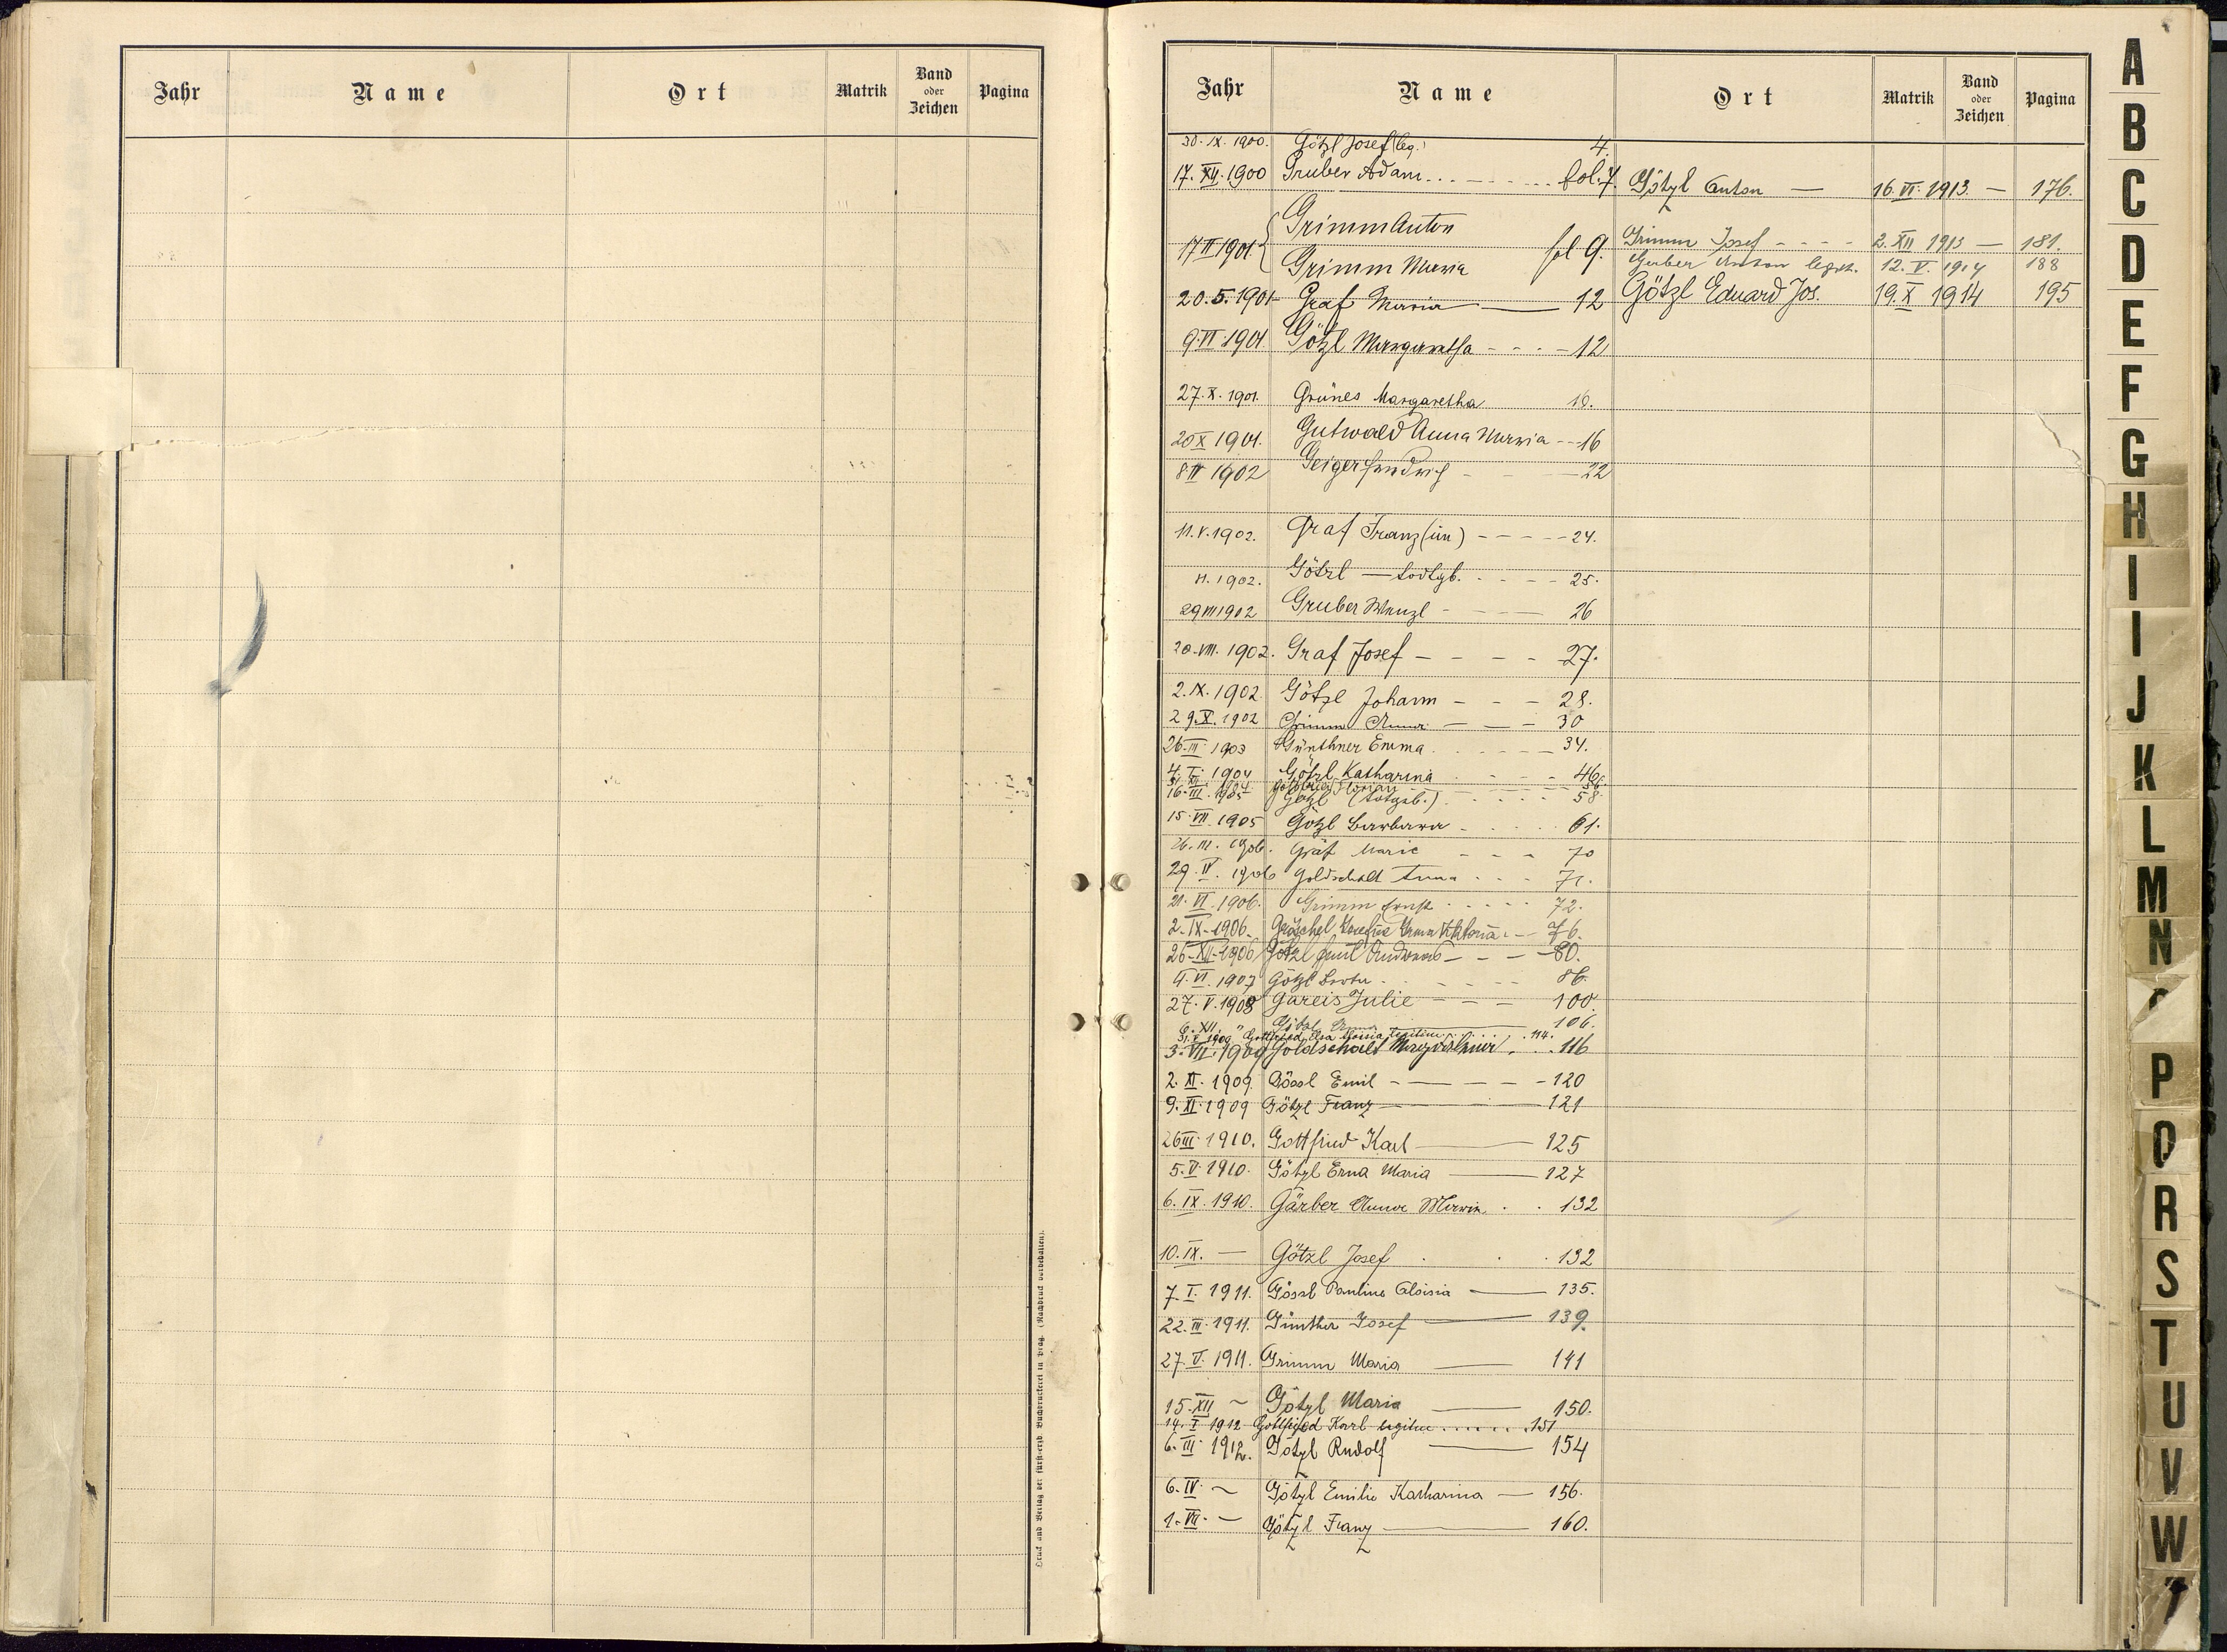 Jahr Name Ort Matrik Band oder Zeichen Pagina
Druck und Verlag der fürsterzb. Buchdruckerei in Prag. (Nachdruck vorbehalten).
Jahr Name Ort Matrik Band oder Zeichen Pagina
30. IX. 1900. Götzl Josef (leg.) 4.
17. XII. 1900 Gruber Adam fol. 7. Götzl Anton — 16. VI. 1913. — 176.
Grimm Anton
17 II 1901 fol 9. Grimm Josef - - - - 2. XII 1913 — 181.
Grimm Maria Anton 12. V. 1914 188
20. 5. 1901 Graf Maria — 12 Götzl Eduard Jos. 19. X 1914 195
9. VI. 1901 Götzl Margaretha - - - - 12
27. X. 1901. Grünes Margaretha 16.
20 X 1901. Gutwald Anna Maria - - 16
8 IV 1902 Geiger - - 22
11. V. 1902. Graf Franz - - - - - 24.
1902. Götzl — todtgb. - - - - 25.
29 VII 1902 Gruber Wenzl - - - 26
20. VIII. 1902. Graf Josef - - - - 27.
2. IX. 1902. Götzl Johann - - - 28.
29. X. 1902 Grimm Anna — — - 30
26. III 1903 Günthner Emma - - - - 34.
4. I. 1904 Götzl Katharina - - - 46.
Florian
16. III. 1905 Götzl (totgeb.) 58.
15. VII. 1905 Götzl Barbara - - - 61.
26. III. 1906. Graf Marie - - - 70
29. IV. 1906 Goldschalt Anna - - - 71.
21. VI. 1906. Grimm Ernst 72.
2. IX. 1906. Viktoria 76.
26. XII. 1906 Götzl Andreas - - - 80.
4. VI. 1907 Götzl Berta - - - 86.
27. V. 1908 Gareis Julie - - - 100.
6. XII. " Götzl — 106.
31. V. 1909 Gottfried Elsa Aloisia 114.
3. VII. 1909 Goldschalt 116
2. XI. 1909. Gössl Emil - — - - - 120
9. XI. 1909 Götzl Franz — 121
26 III 1910. Gottfried Karl — 125
5. V. 1910. Götzl Erna Maria — 127
6. IX. 1910. Gärber Anna Maria . . 132
10. IX. — Götzl Josef . . . 132
7. I. 1911. Gössl Paulina Aloisia — 135.
22. III. 1911. Günther Josef — 139.
27. V. 1911. Grimm Maria — 141
15. XII ~ Götzl Maria — 150.
14. I 1912 Gottfried Karl 151
6. III. 1912. Götzl Rudolf — 154
6. IV. ~ Götzl Emilie Katharina — 156.
1. VII. — Götzl Franz — 160.
A
B
C
D
E
F
G
H
I
I
J
K
L
M
N
P
Q
R
S
T
U
V
W